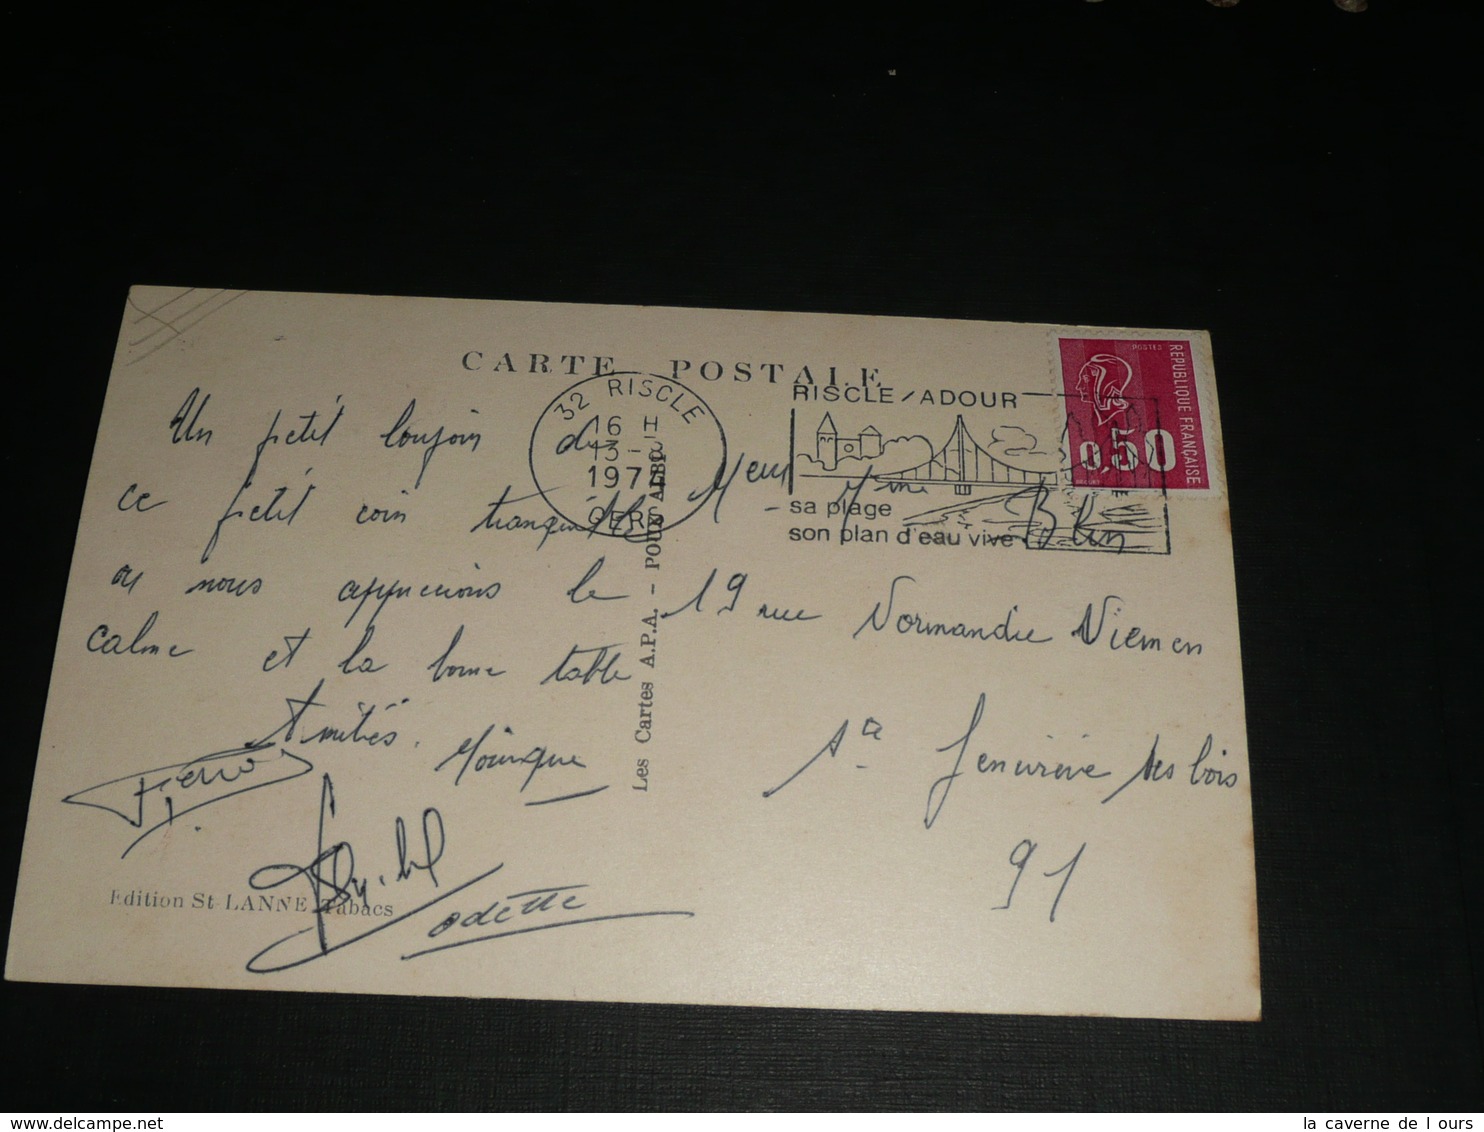 CARTE POSTALE
32 RISCLE
16 H
13 -
197
GERS
RISCLE/ADOUR
sa plage
son plan d'eau vive
POSTES
REPUBLIQUE FRANÇAISE
0,50
Un petit bonjour de
ce petit coin tranquille
ou nous apprecions le
calme et la bonne table
Amitiés. Monique
Odette
Edition St-LANNE Tabacs
Les Cartes A.P.A. - POUX ALBI
Meur Mme
19 rue Normandie Niemen
Ste Geneviève des bois
91
la caverne de l ours